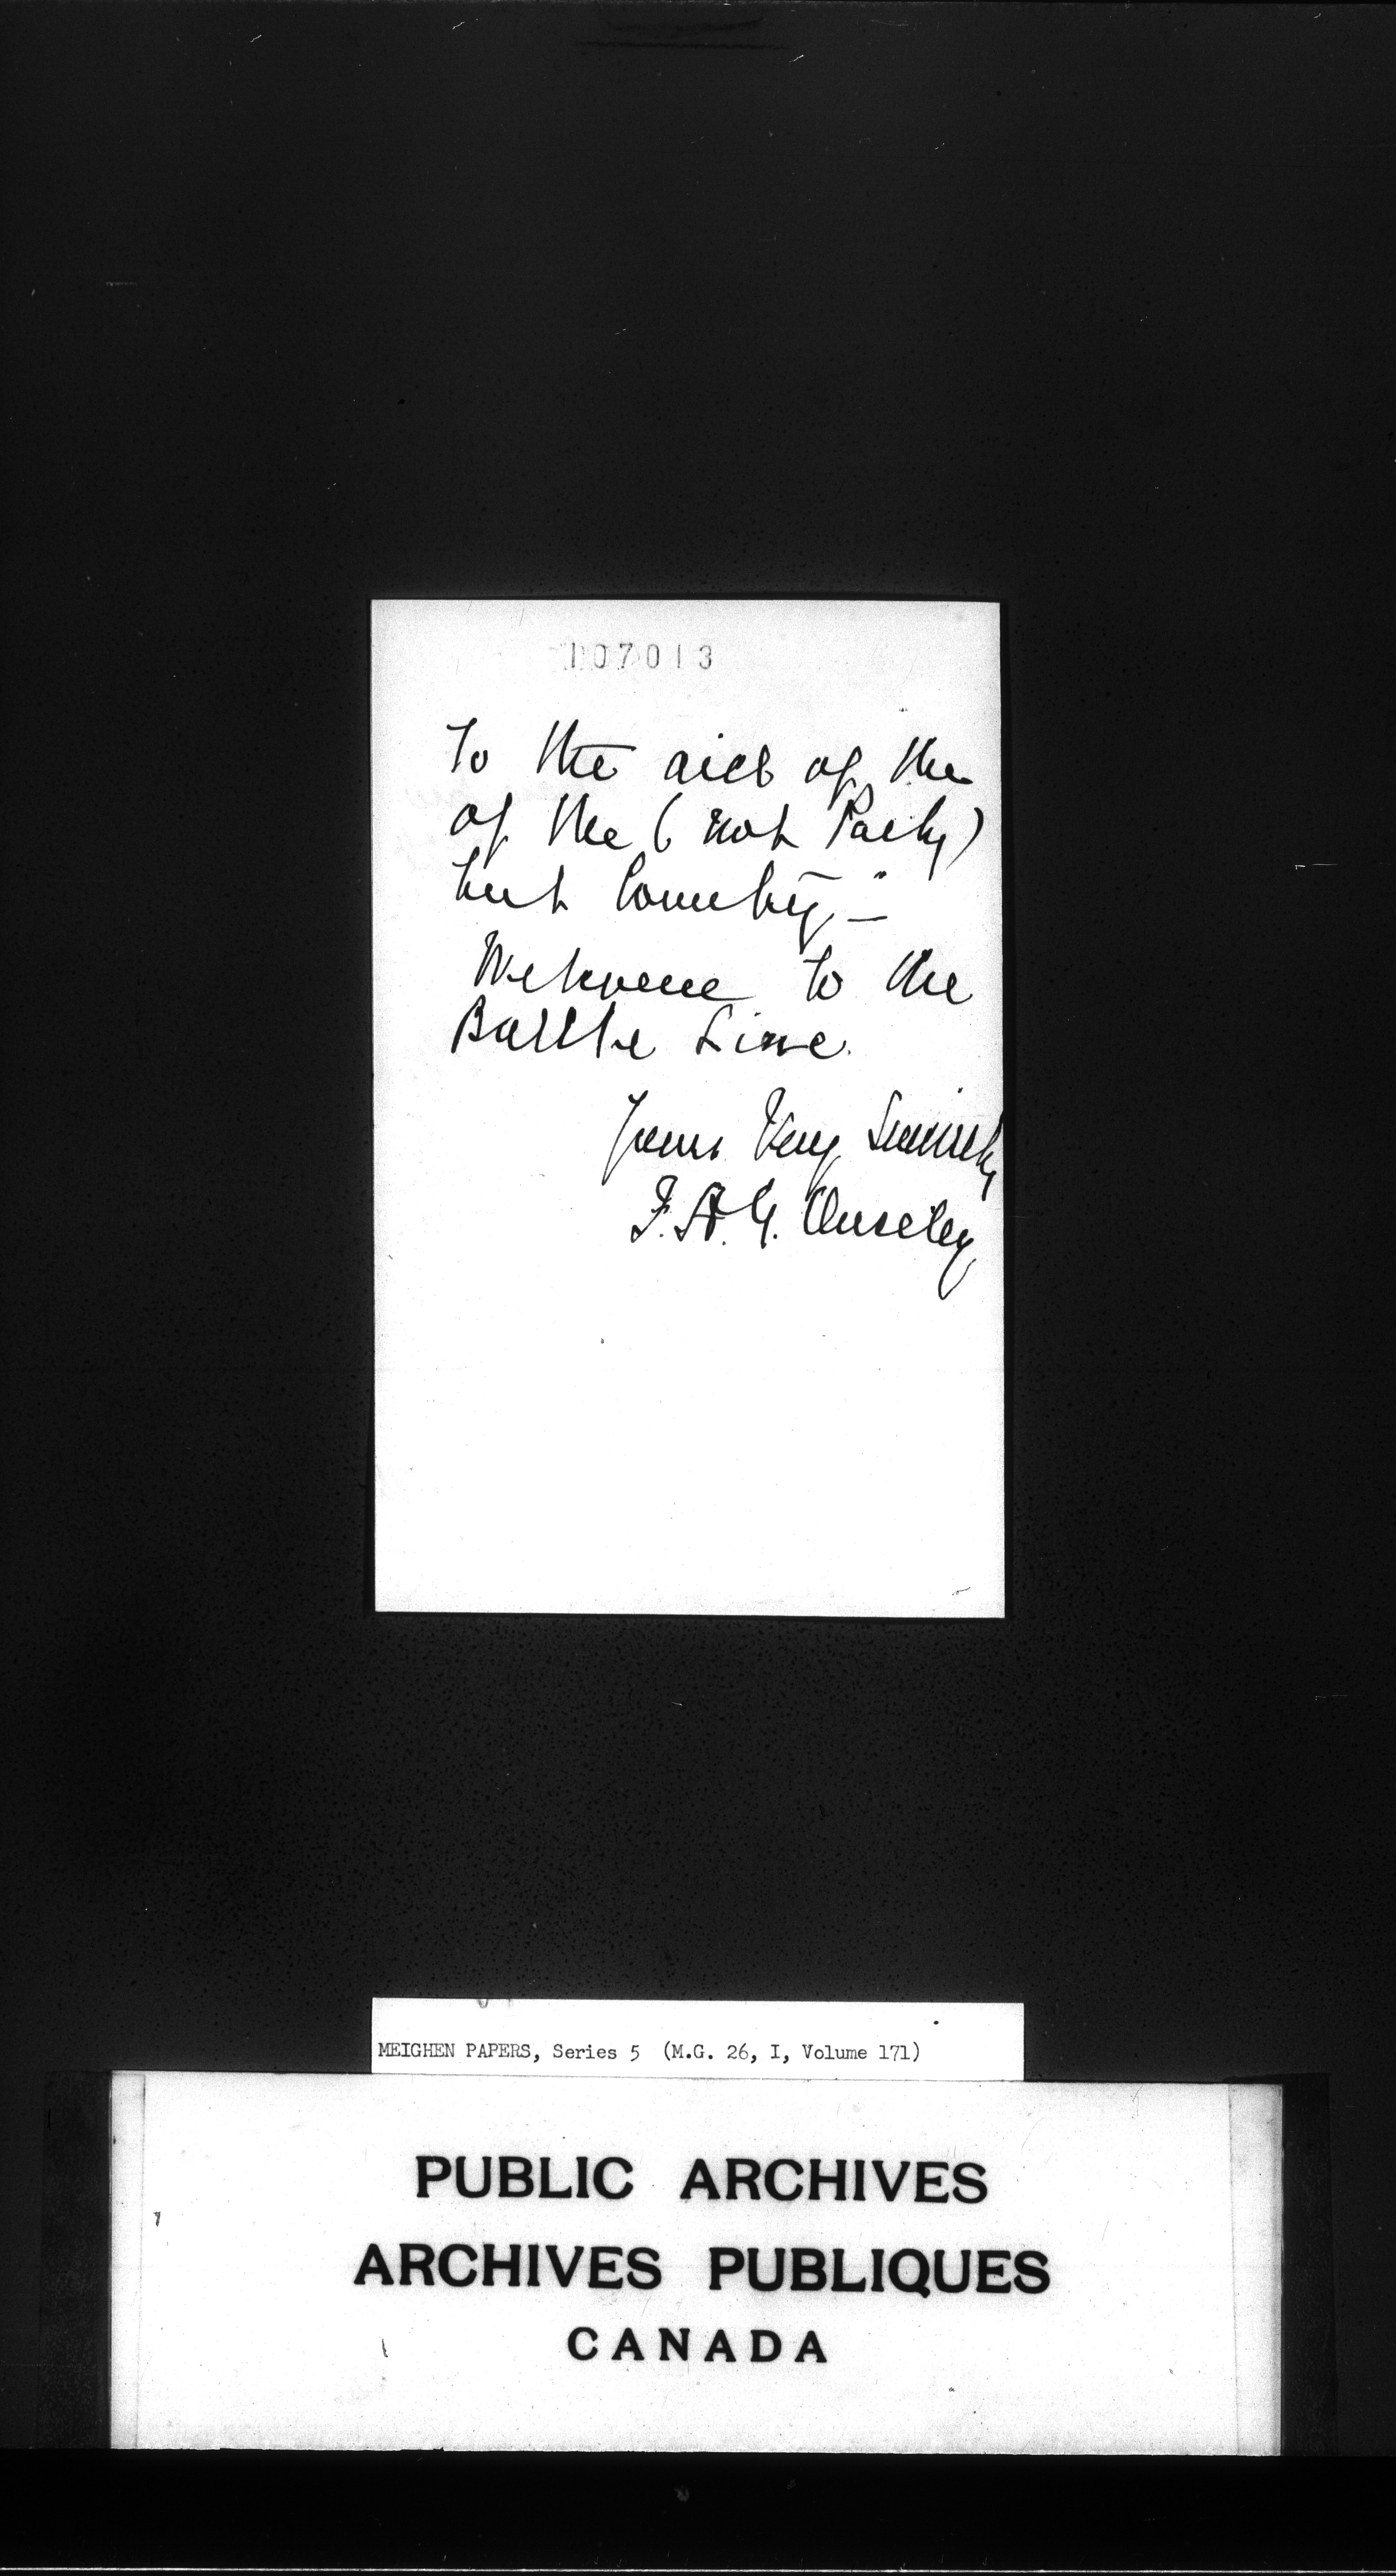 107013
To the aid of the
of the (not Party)
but Country, —
Welcome to the
Battle Line.
Yours Very Sincerely
F. A. G. Ouseley
MEIGHEN PAPERS, Series 5 (M.G. 26, I, Volume 171)
PUBLIC ARCHIVES
ARCHIVES PUBLIQUES
CANADA